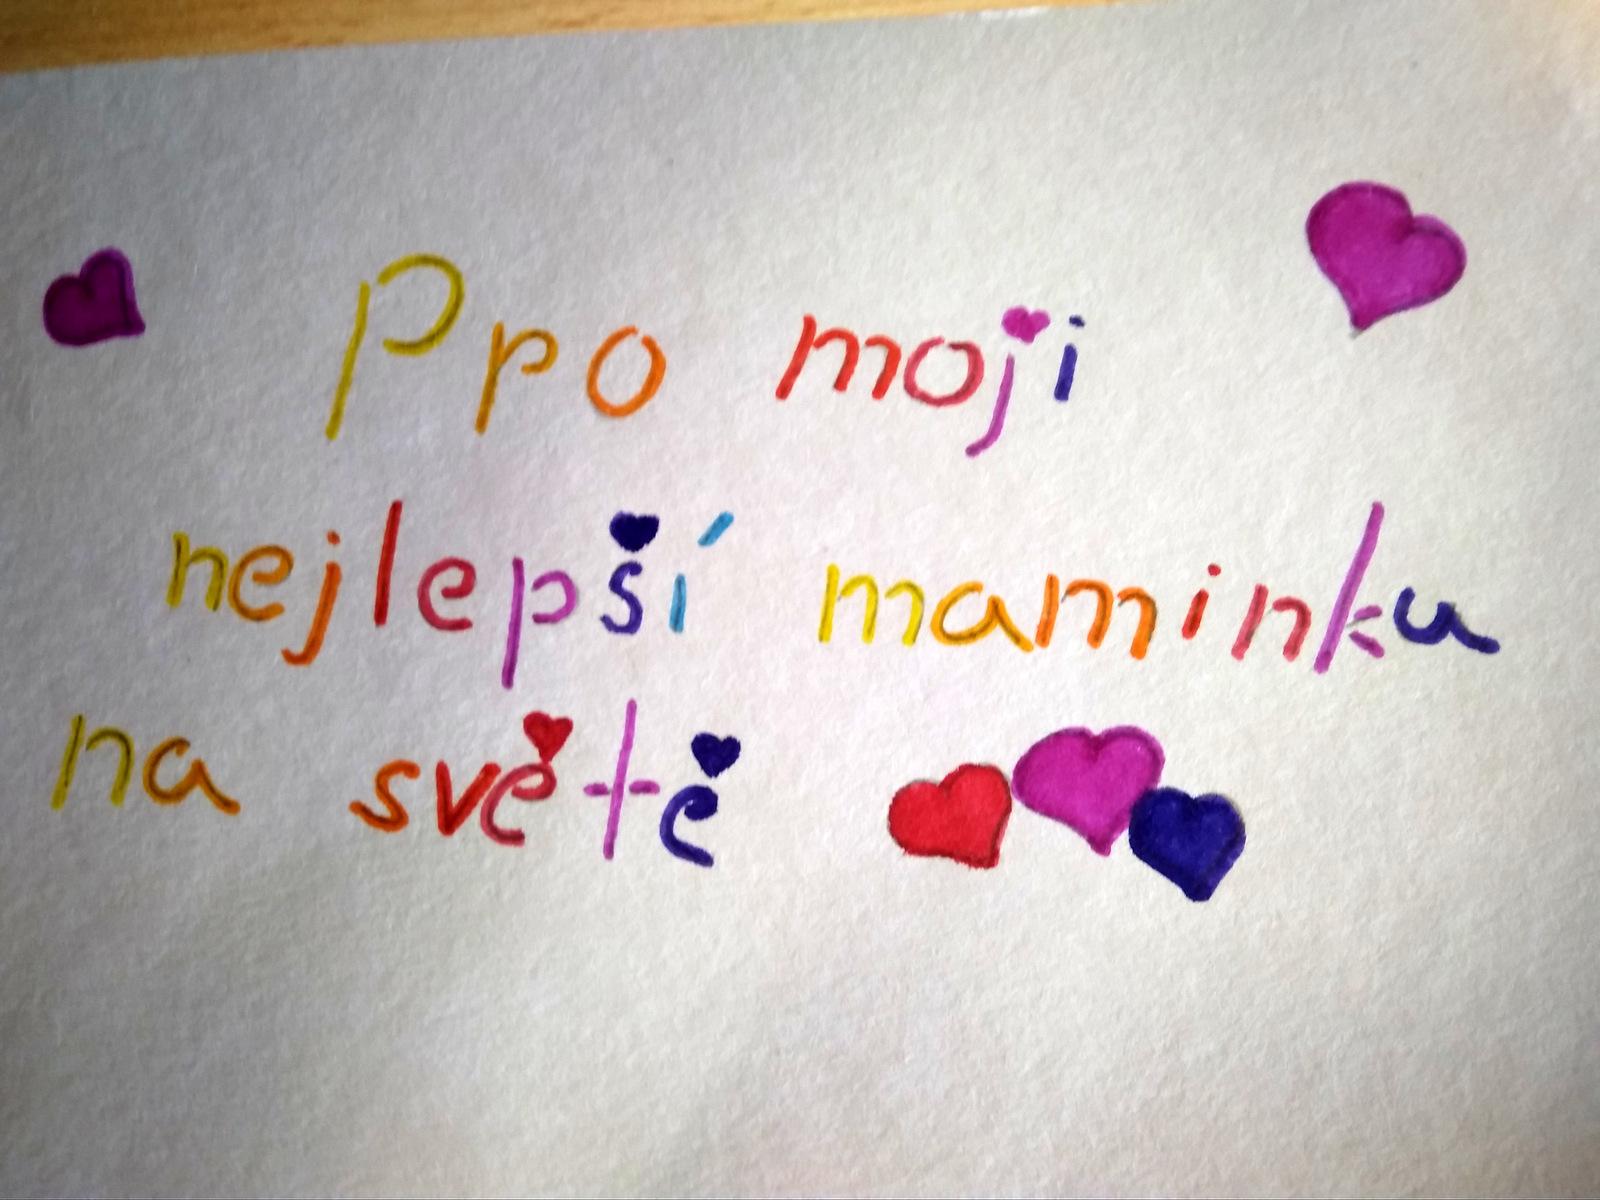 Pro moji
nejlepší maminku
na světě